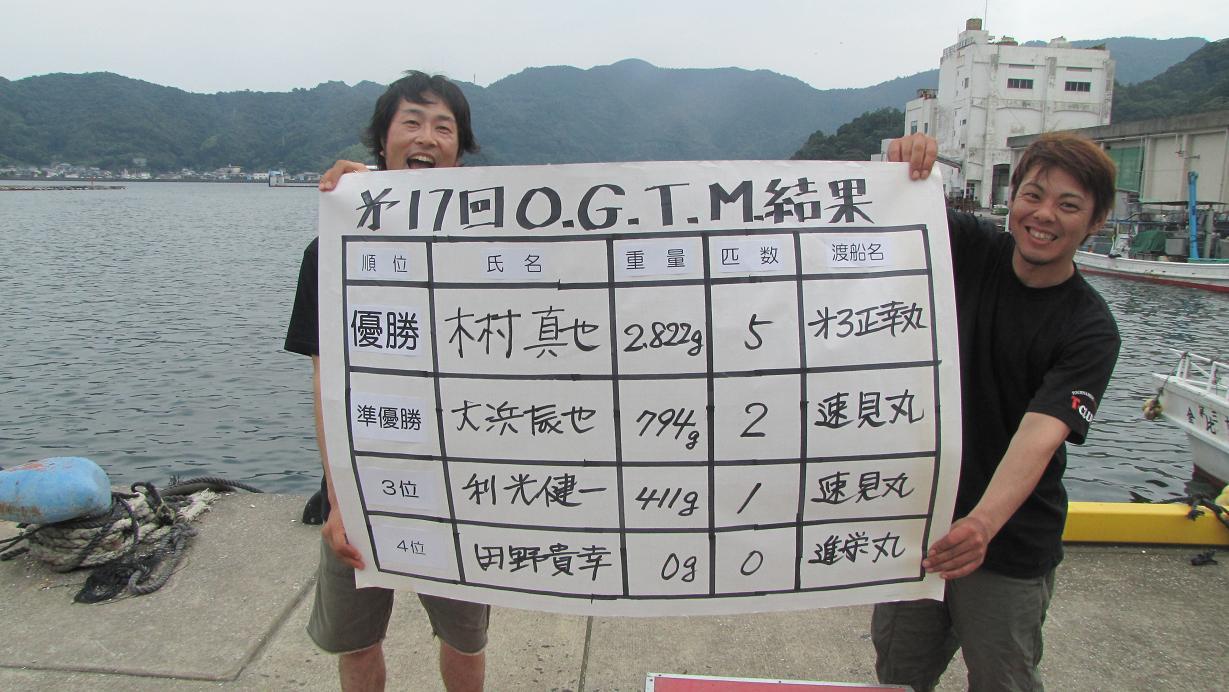 第17回O.G.T.M.結果
順位 氏名 重量 匹数 渡船名
優勝 木村真也 2.822g 5 第3正幸丸
準優勝 大浜辰也 794g 2 速見丸
3位 利光健一 411g 1 速見丸
4位 田野貴幸 0g 0 進栄丸